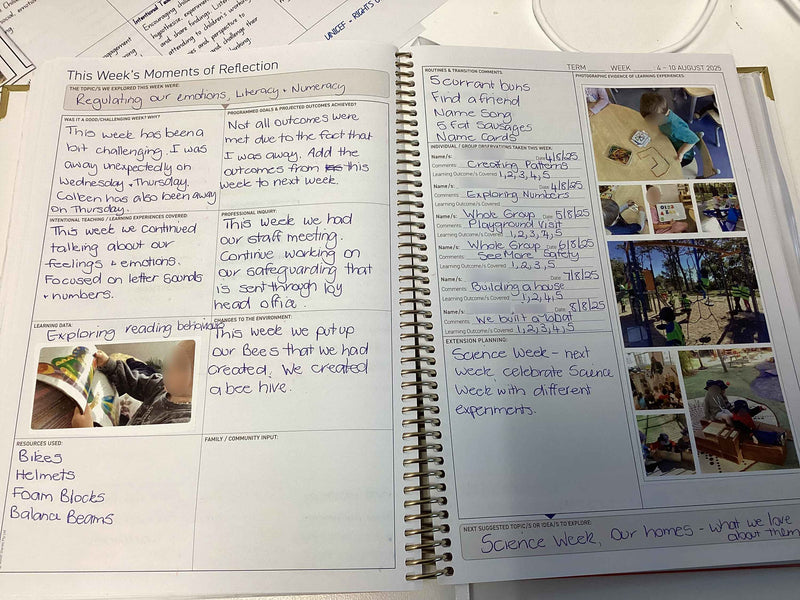 Intentional Teac
Encouraging childr
hypothesise, experimen
and share findings. Listen
attending to children's working
views and perspective to
and challenge their
UNICEF - RIGHTS O
This Week's Moments of Reflection
THE TOPIC/S WE EXPLORED THIS WEEK WERE:
Regulating our emotions, Literacy + Numeracy
WAS IT A GOOD/CHALLENGING WEEK? WHY?
This week has been a
bit challenging. I was
away unexpectedly on
Wednesday + Thursday.
Colleen has also been away
on Thursday.
PROGRAMMED GOALS & PROJECTED OUTCOMES ACHIEVED?
Not all outcomes were
met due to the fact that
I was away. Add the
outcomes from this
week to next week.
INTENTIONAL TEACHING / LEARNING EXPERIENCES COVERED:
This week we continued
talking about our
feelings + emotions.
Focused on letter sounds
+ numbers.
PROFESSIONAL INQUIRY:
This week we had
our staff meeting.
Continue working on
our safeguarding that
is sent through by
head office.
LEARNING DATA:
Exploring reading behaviours
CHANGES TO THE ENVIRONMENT:
This week we put up
our Bees that we had
created. We created
a bee hive.
RESOURCES USED:
Bikes
Helmets
Foam Blocks
Balance Beams
FAMILY / COMMUNITY INPUT:
TERM WEEK : 4 – 10 AUGUST 2025
ROUTINES & TRANSITION COMMENTS:
5 currant buns
Find a friend
Name Song
5 Fat Sausages
Name Cards
INDIVIDUAL / GROUP OBSERVATIONS TAKEN THIS WEEK:
Name/s: Date 4/8/25
Comments Creating Patterns
Learning Outcome/s Covered 1,2,3,4,5
Name/s: Date 4/8/25
Comments Exploring Numbers
Learning Outcome/s Covered 1,2,3,5
Name/s: Whole Group Date 5/8/25
Comments Playground Visit
Learning Outcome/s Covered 1,2,3,4,5
Name/s: Whole Group Date 6/8/25
Comments See More Safety
Learning Outcome/s Covered 1,2,3,5
Name/s: Date 7/8/25
Comments Building a house
Learning Outcome/s Covered 1,2,4,5
Name/s: Date 8/8/25
Comments We built a boat
Learning Outcome/s Covered 1,2,3,4,5
EXTENSION PLANNING:
Science Week - next
week, celebrate Science
Week with different
experiments.
PHOTOGRAPHIC EVIDENCE OF LEARNING EXPERIENCES:
NEXT SUGGESTED TOPIC/S OR IDEA/S TO EXPLORE:
Science Week, Our homes - what we love
about them